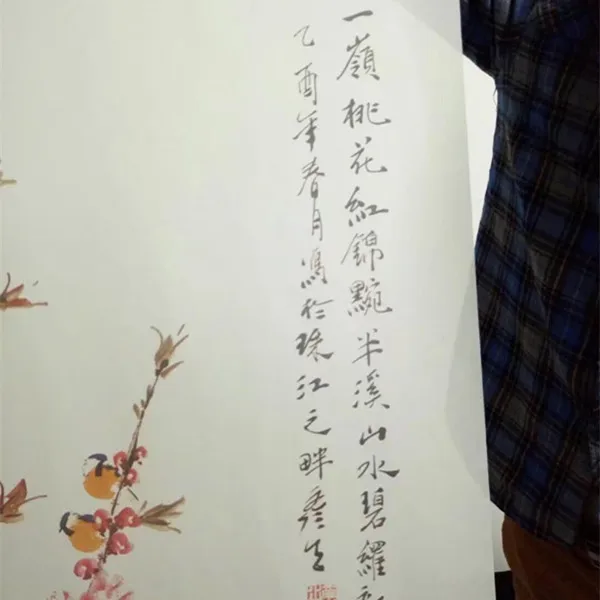 一嶺桃花紅錦黦半溪山水碧羅
乙酉年春月寫於珠江之畔彥生